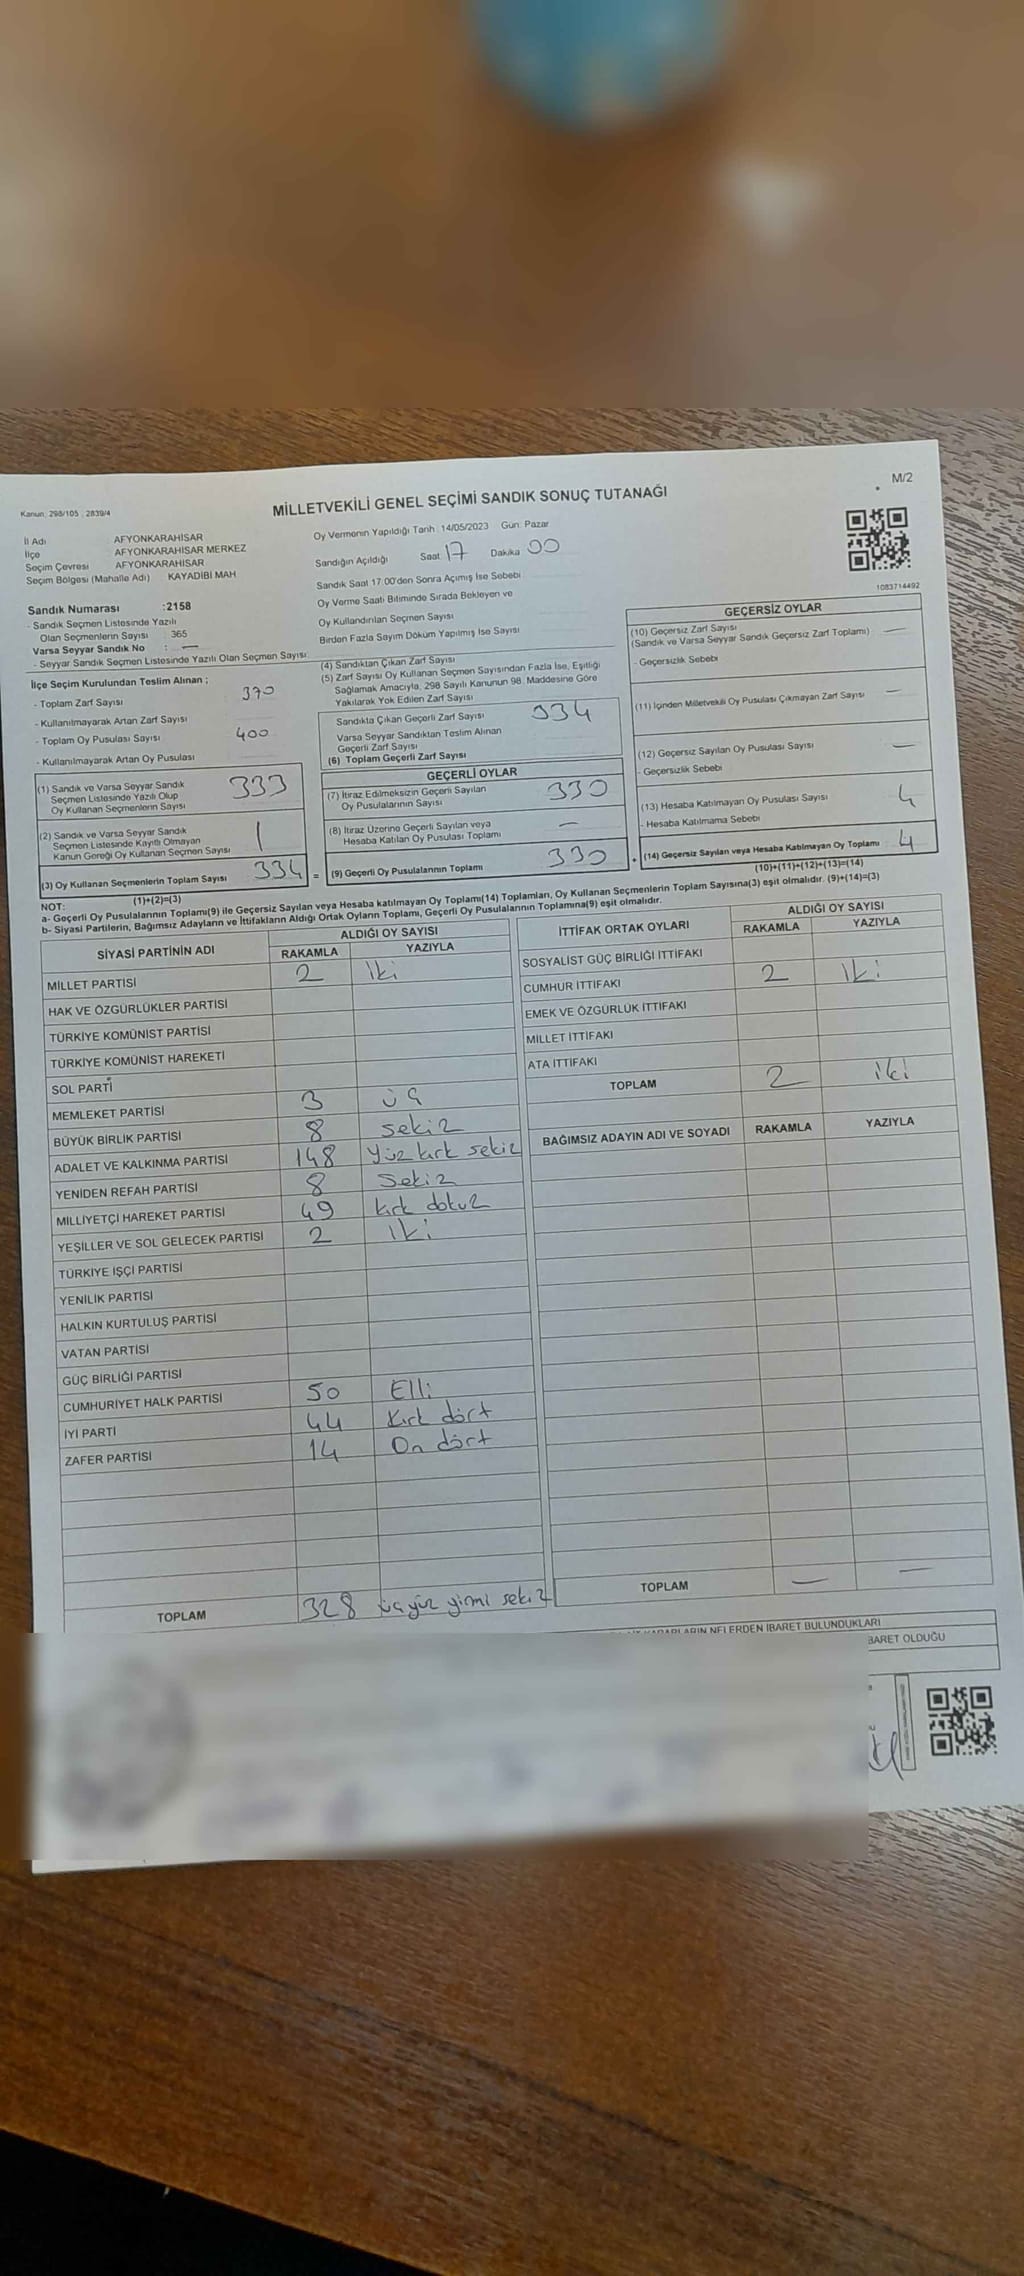 M/2
Kanun: 298/105 ; 2839/4
MİLLETVEKİLİ GENEL SEÇİMİ SANDIK SONUÇ TUTANAĞI
İl Adı AFYONKARAHİSAR
İlçe AFYONKARAHİSAR MERKEZ
Seçim Çevresi AFYONKARAHİSAR
Seçim Bölgesi (Mahalle Adı) KAYADİBİ MAH
Sandık Numarası :2158
- Sandık Seçmen Listesinde Yazılı
Olan Seçmenlerin Sayısı : 365
Varsa Seyyar Sandık No : —
- Seyyar Sandık Seçmen Listesinde Yazılı Olan Seçmen Sayısı:
Oy Vermenin Yapıldığı Tarih :14/05/2023 Gün: Pazar
Sandığın Açıldığı Saat 17 Dakika 00
Sandık Saat 17:00'den Sonra Açımış İse Sebebi
Oy Verme Saati Bitiminde Sırada Bekleyen ve
Oy Kullandırılan Seçmen Sayısı
Birden Fazla Sayım Döküm Yapılmış İse Sayısı
1083714492
İlçe Seçim Kurulundan Teslim Alınan ;
- Toplam Zarf Sayısı 370
- Kullanılmayarak Artan Zarf Sayısı
- Toplam Oy Pusulası Sayısı 400
- Kullanılmayarak Artan Oy Pusulası
(1) Sandık ve Varsa Seyyar Sandık
Seçmen Listesinde Yazılı Olup
Oy Kullanan Seçmenlerin Sayısı 333
(2) Sandık ve Varsa Seyyar Sandık
Seçmen Listesinde Kayıtlı Olmayan
Kanun Gereği Oy Kullanan Seçmen Sayısı 1
(3) Oy Kullanan Seçmenlerin Toplam Sayısı 334 =
(1)+(2)=(3)
(4) Sandıktan Çıkan Zarf Sayısı
(5) Zarf Sayısı Oy Kullanan Seçmen Sayısından Fazla İse, Eşitliği
Sağlamak Amacıyla, 298 Sayılı Kanunun 98. Maddesine Göre
Yakılarak Yok Edilen Zarf Sayısı
Sandıkta Çıkan Geçerli Zarf Sayısı 334
Varsa Seyyar Sandıktan Teslim Alınan
Geçerli Zarf Sayısı
(6) Toplam Geçerli Zarf Sayısı
GEÇERLİ OYLAR
(7) İtiraz Edilmeksizin Geçerli Sayılan
Oy Pusulalarının Sayısı 330
(8) İtiraz Üzerine Geçerli Sayılan veya
Hesaba Katılan Oy Pusulası Toplamı —
(9) Geçerli Oy Pusulalarının Toplamı 330 +
GEÇERSİZ OYLAR
(10) Geçersiz Zarf Sayısı
(Sandık ve Varsa Seyyar Sandık Geçersiz Zarf Toplamı) —
- Geçersizlik Sebebi
(11) İçinden Milletvekili Oy Pusulası Çıkmayan Zarf Sayısı —
(12) Geçersiz Sayılan Oy Pusulası Sayısı —
- Geçersizlik Sebebi
(13) Hesaba Katılmayan Oy Pusulası Sayısı 4
- Hesaba Katılmama Sebebi
(14) Geçersiz Sayılan veya Hesaba Katılmayan Oy Toplamı 4
(10)+(11)+(12)+(13)=(14)
NOT:
a- Geçerli Oy Pusulalarının Toplamı(9) ile Geçersiz Sayılan veya Hesaba Katılmayan Oy Toplamı(14) Toplamları, Oy Kullanan Seçmenlerin Toplam Sayısına(3) eşit olmalıdır. (9)+(14)=(3)
b- Siyasi Partilerin, Bağımsız Adayların ve İttifakların Aldığı Ortak Oyların Toplamı, Geçerli Oy Pusulalarının Toplamına(9) eşit olmalıdır.
SİYASİ PARTİNİN ADI ALDIĞI OY SAYISI
RAKAMLA YAZIYLA
MİLLET PARTİSİ 2 iki
HAK VE ÖZGÜRLÜKLER PARTİSİ
TÜRKİYE KOMÜNİST PARTİSİ
TÜRKİYE KOMÜNİST HAREKETİ
SOL PARTİ
MEMLEKET PARTİSİ 3 üç
BÜYÜK BİRLİK PARTİSİ 8 sekiz
ADALET VE KALKINMA PARTİSİ 148 Yüz kırk sekiz
YENİDEN REFAH PARTİSİ 8 Sekiz
MİLLİYETÇİ HAREKET PARTİSİ 49 kırk dokuz
YEŞİLLER VE SOL GELECEK PARTİSİ 2 iki
TÜRKİYE İŞÇİ PARTİSİ
YENİLİK PARTİSİ
HALKIN KURTULUŞ PARTİSİ
VATAN PARTİSİ
GÜÇ BİRLİĞİ PARTİSİ
CUMHURİYET HALK PARTİSİ 50 Elli
İYİ PARTİ 44 Kırk dört
ZAFER PARTİSİ 14 On dört
TOPLAM 328 üçyüz yirmi sekiz
İTTİFAK ORTAK OYLARI ALDIĞI OY SAYISI
RAKAMLA YAZIYLA
SOSYALİST GÜÇ BİRLİĞİ İTTİFAKI
CUMHUR İTTİFAKI 2 iki
EMEK VE ÖZGÜRLÜK İTTİFAKI
MİLLET İTTİFAKI
ATA İTTİFAKI
TOPLAM 2 iki
BAĞIMSIZ ADAYIN ADI VE SOYADI RAKAMLA YAZIYLA
TOPLAM — —
KARARLARIN NELERDEN İBARET BULUNDUKLARI
İBARET OLDUĞU